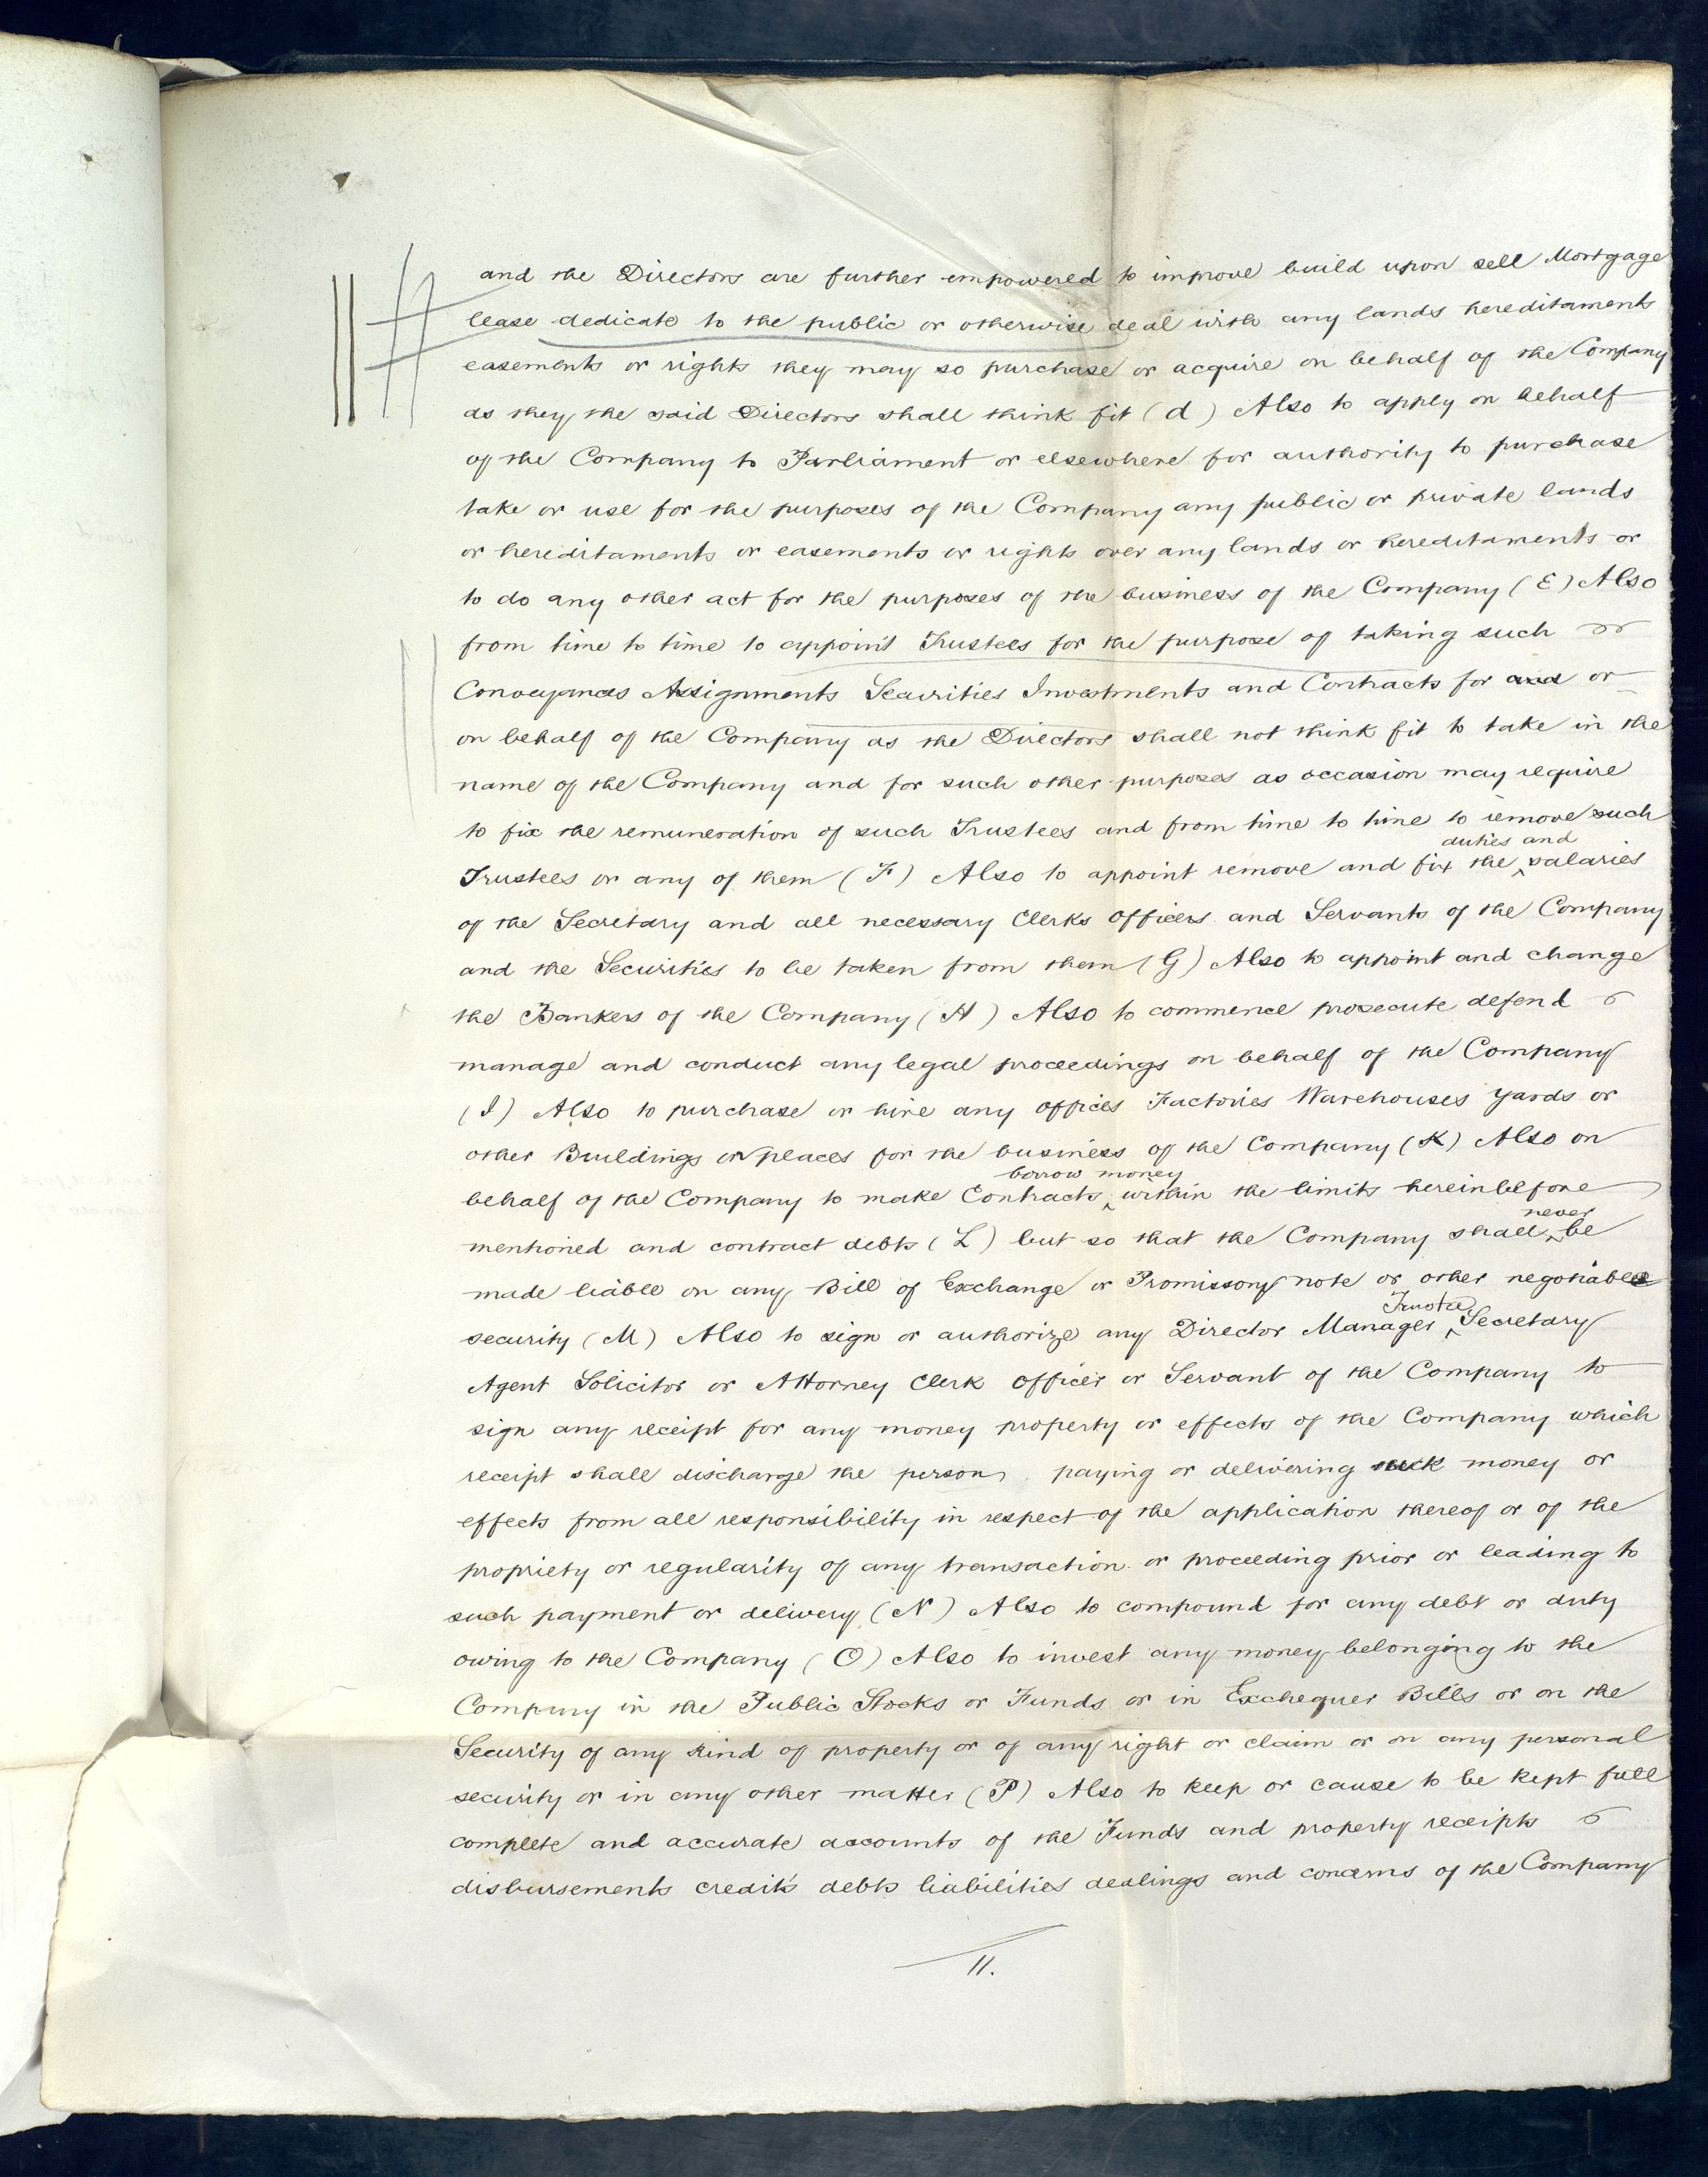 and the Directors are further empowered to improve build upon sell Mortgage
lease dedicate to the public or otherwise deal with any lands hereditaments
easements or rights they may so purchase or acquire on behalf of the Company
as they the said Directors shall think fit (d) Also to apply on behalf
of the Company to Parliament or elsewhere for authority to purchase
take or use for the purposes of the Company any public or private lands
or hereditaments or easements or rights over any lands or hereditaments or
to do any other act for the purposes of the business of the Company (E) Also
from time to time to appoint Trustees for the purpose of taking such
Conveyances Assignments Securities Investments and Contracts for and or
on behalf of the Company as the Directors shall not think fit to take in the
name of the Company and for such other purposes as occasion may require
to fix the remuneration of such Trustees and from time to time to remove such
duties and
Trustees or any of them (F) Also to appoint remove and fix the ‸ salaries
of the Secretary and all necessary Clerks Officers and Servants of the Company
and the Securities to be taken from them (G) Also to appoint and change
the Bankers of the Company (H) Also to commence prosecute defend
manage and conduct any legal proceedings on behalf of the Company
(I) Also to purchase or hire any offices Factories Warehouses yards or
other Buildings or places for the business of the Company (K) Also on
borrow money
behalf of the Company to make Contracts ‸ within the limits hereinbefore
never
mentioned and contract debts (L) but so that the Company shall ‸ be
made liable on any Bill of Exchange or Promissory note or other negotiable
Trustee
security (M) Also to sign or authorize any Director Manager ‸ Secretary
Agent Solicitor or Attorney Clerk Officer or Servant of the Company to
sign any receipt for any money property or effects of the Company which
receipt shall discharge the person paying or delivering such money or
effects from all responsibility in respect of the application thereof or of the
propriety or regularity of any transaction or proceeding prior or leading to
such payment or delivery (N) Also to compound for any debt or duty
owing to the Company (O) Also to invest any money belonging to the
Company in the Public Stocks or Funds or in Exchequer Bills or on the
Security of any kind of property or of any right or claim or on any personal
security or in any other matter (P) Also to keep or cause to be kept full
complete and accurate accounts of the Funds and property receipts
disbursements credits debts liabilities dealings and concerns of the Company
11.